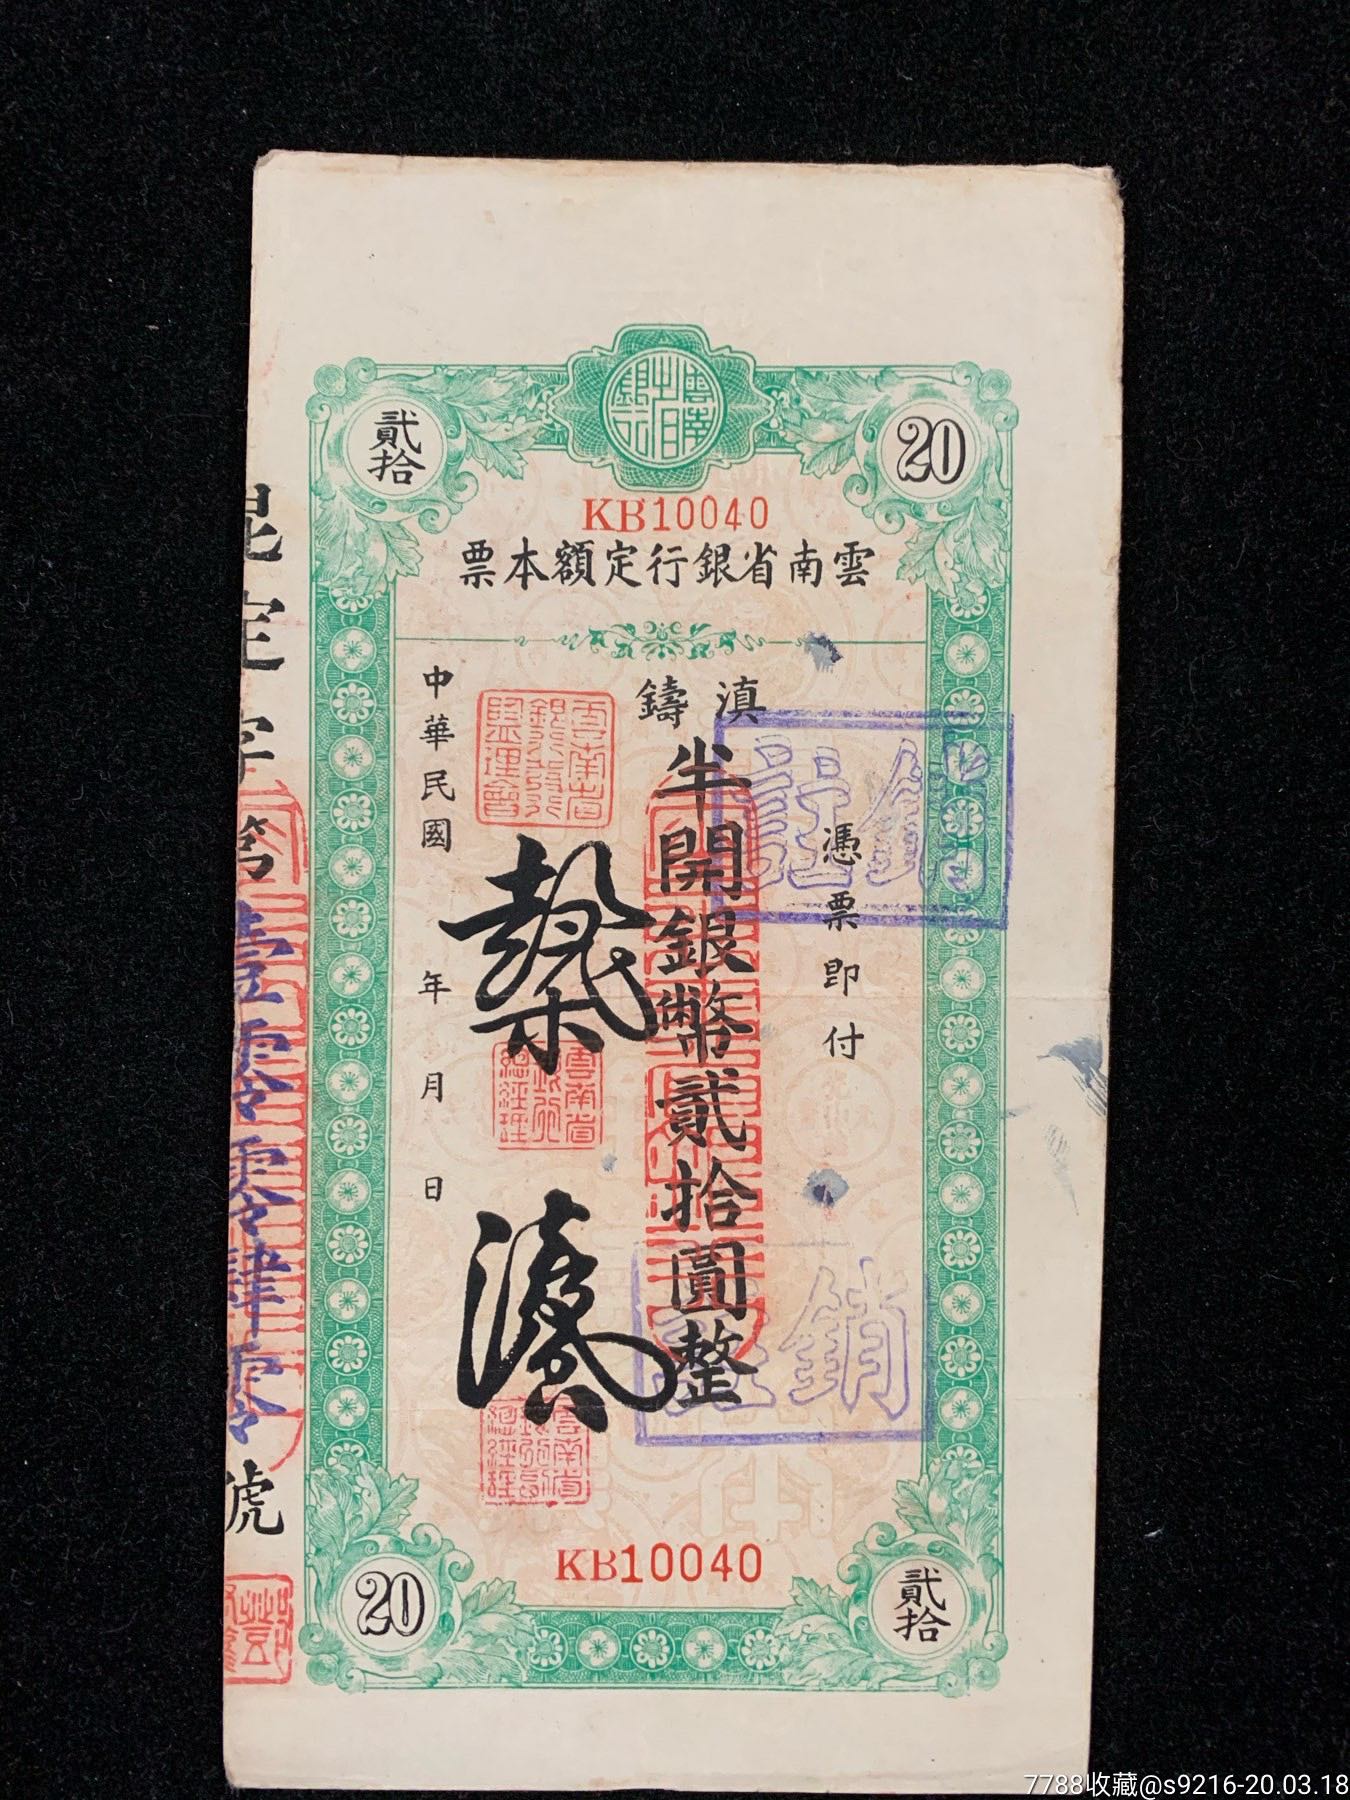 雲南省銀行
貳拾
20
KB10040
雲南省銀行定額本票
憑票即付
滇鑄
半開銀幣貳拾圓整
中華民國 年 月 日
雲南省銀行總經理
註銷
註銷
昆定字第壹零零肆零號
KB10040
20
貳拾
7788收藏@s9216-20.03.18